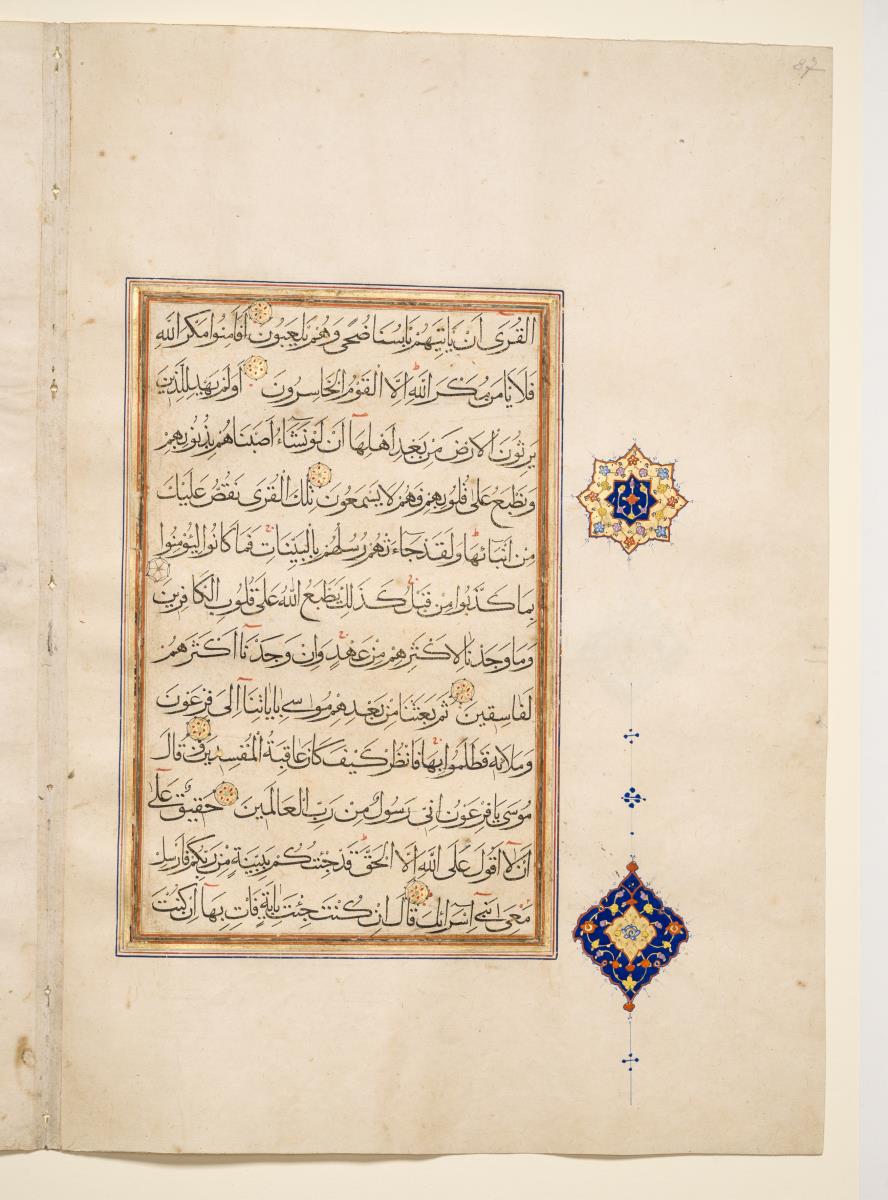 87
القُرَى أَنْ يَأتِيَهُمْ بَأسُنَا ضُحًى وَهُمْ يَلْعَبُونَ أَفَأَمِنُوا مَكْرَ اللهِ
فَلَا يَأمَنُ مَكْرَ اللهِ إِلَّا الْقَوْمُ الْخَاسِرُونَ أَوَلَمْ يَهْدِ لِلَّذِينَ
يَرِثُونَ الْأَرْضَ مِنْ بَعْدِ أَهْلِهَا أَنْ لَوْ نَشَاءُ أَصَبْنَاهُمْ بِذُنُوبِهِمْ
وَنَطْبَعُ عَلَى قُلُوبِهِمْ فَهُمْ لَا يَسْمَعُونَ تِلْكَ الْقُرَى نَقُصُّ عَلَيْكَ
مِنْ أَنْبَائِهَا وَلَقَدْ جَاءَتْهُمْ رُسُلُهُمْ بِالْبَيِّنَاتِ فَمَا كَانُوا لِيُؤْمِنُوا
بِمَا كَذَّبُوا مِنْ قَبْلُ كَذَلِكَ يَطْبَعُ اللهُ عَلَى قُلُوبِ الْكَافِرِينَ
وَمَا وَجَدْنَا لِأَكْثَرِهِمْ مِنْ عَهْدٍ وَإِنْ وَجَدْنَا أَكْثَرَهُمْ
لَفَاسِقِينَ ثُمَّ بَعَثْنَا مِنْ بَعْدِهِمْ مُوسَى بِآيَاتِنَا إِلَى فِرْعَوْنَ
وَمَلَائِهِ فَظَلَمُوا بِهَا فَانْظُرْ كَيْفَ كَانَ عَاقِبَةُ الْمُفْسِدِينَ وَقَالَ
مُوسَى يَا فِرْعَوْنُ إِنِّي رَسُولٌ مِنْ رَبِّ الْعَالَمِينَ حَقِيقٌ عَلَى
أَنْ لَا أَقُولَ عَلَى اللهِ إِلَّا الْحَقَّ قَدْ جِئْتُكُمْ بِبَيِّنَةٍ مِنْ رَبِّكُمْ فَأَرْسِلْ
مَعِيَ بَنِي إِسْرَائِيلَ قَالَ إِنْ كُنْتَ جِئْتَ بِآيَةٍ فَأْتِ بِهَا إِنْ كُنْتَ